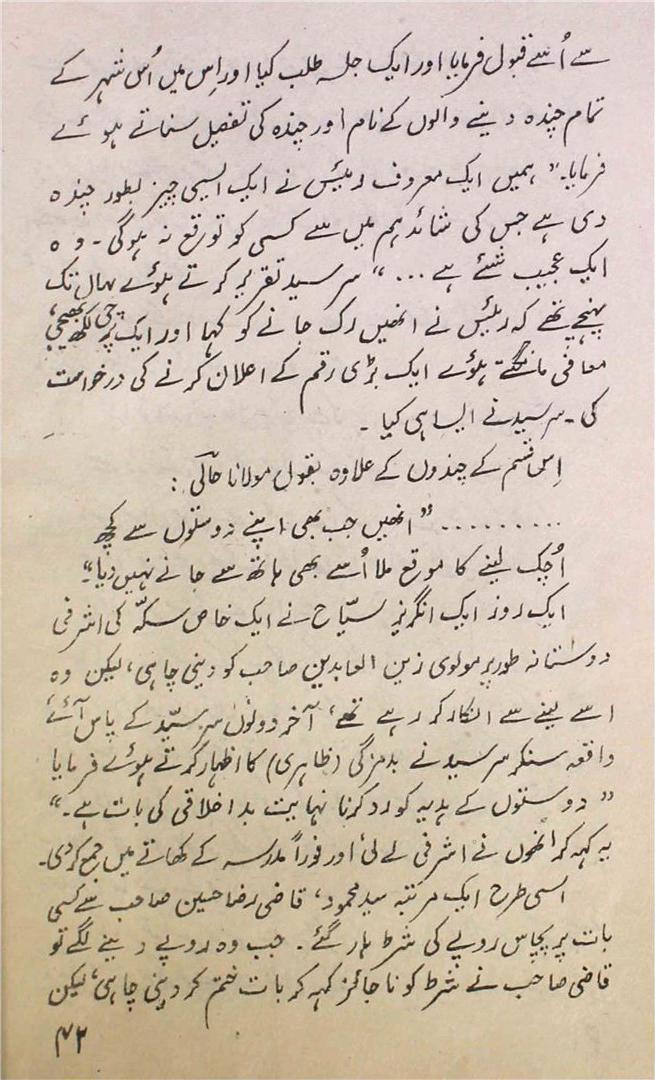 سے اُسے قبول فرمایا اور ایک جلسہ طلب کیا اور اِس میں اُس شہر کے
تمام چندہ دینے والوں کے نام اور چندہ کی تفصیل سناتے ہوئے
فرمایا۔" ہمیں ایک معروف رئیس نے ایک ایسی چیز بطور چندہ
دی ہے جس کی شائد ہم میں سے کسی کو توقع نہ ہوگی ۔ وہ
ایک عجیب شئے ہے ... " سر سید تقریر کرتے ہوئے یہاں تک
پہنچے تھے کہ رئیس نے انھیں رک جانے کو کہا اور ایک پرچی لکھ بھیجی،
معافی مانگتے ہوئے ایک بڑی رقم کے اعلان کرنے کی درخواست
کی۔ سر سید نے ایسا ہی کیا ۔
اِس قسم کے چندوں کے علاوہ بقول مولانا حالؔی :
......... " انھیں جب بھی اپنے دوستوں سے کچھ
اُچک لینے کا موقع ملا اُسے بھی ہاتھ سے جانے نہیں دیا"۔
ایک روز ایک انگریز سیّاح نے ایک خاص سکّہ کی اشرفی
دوستانہ طور پر مولوی زین العابدین صاحب کو دینی چاہی، لیکن وہ
اسے لینے سے انکار کر رہے تھے، آخر دونوں سر سیّد کے پاس آئے،
واقعہ سنکر سر سید نے بدمزگی (ظاہری) کا اظہار کرتے ہوئے فرمایا
" دوستوں کے ہدیہ کو رد کرنا نہایت بد اخلاقی کی بات ہے۔"
یہ کہہ کر انھوں نے اشرفی لے لی اور فوراً مدرسہ کے کھاتے میں جمع کر دی۔
اسی طرح ایک مرتبہ سید محمود، قاضی رضا حسین صاحب سے کسی
بات پر پچاس روپے کی شرط ہار گئے ۔ جب وہ روپے دینے لگے تو
قاضی صاحب نے شرط کو ناجائز کہہ کر بات ختم کر دینی چاہی، لیکن
۴۲